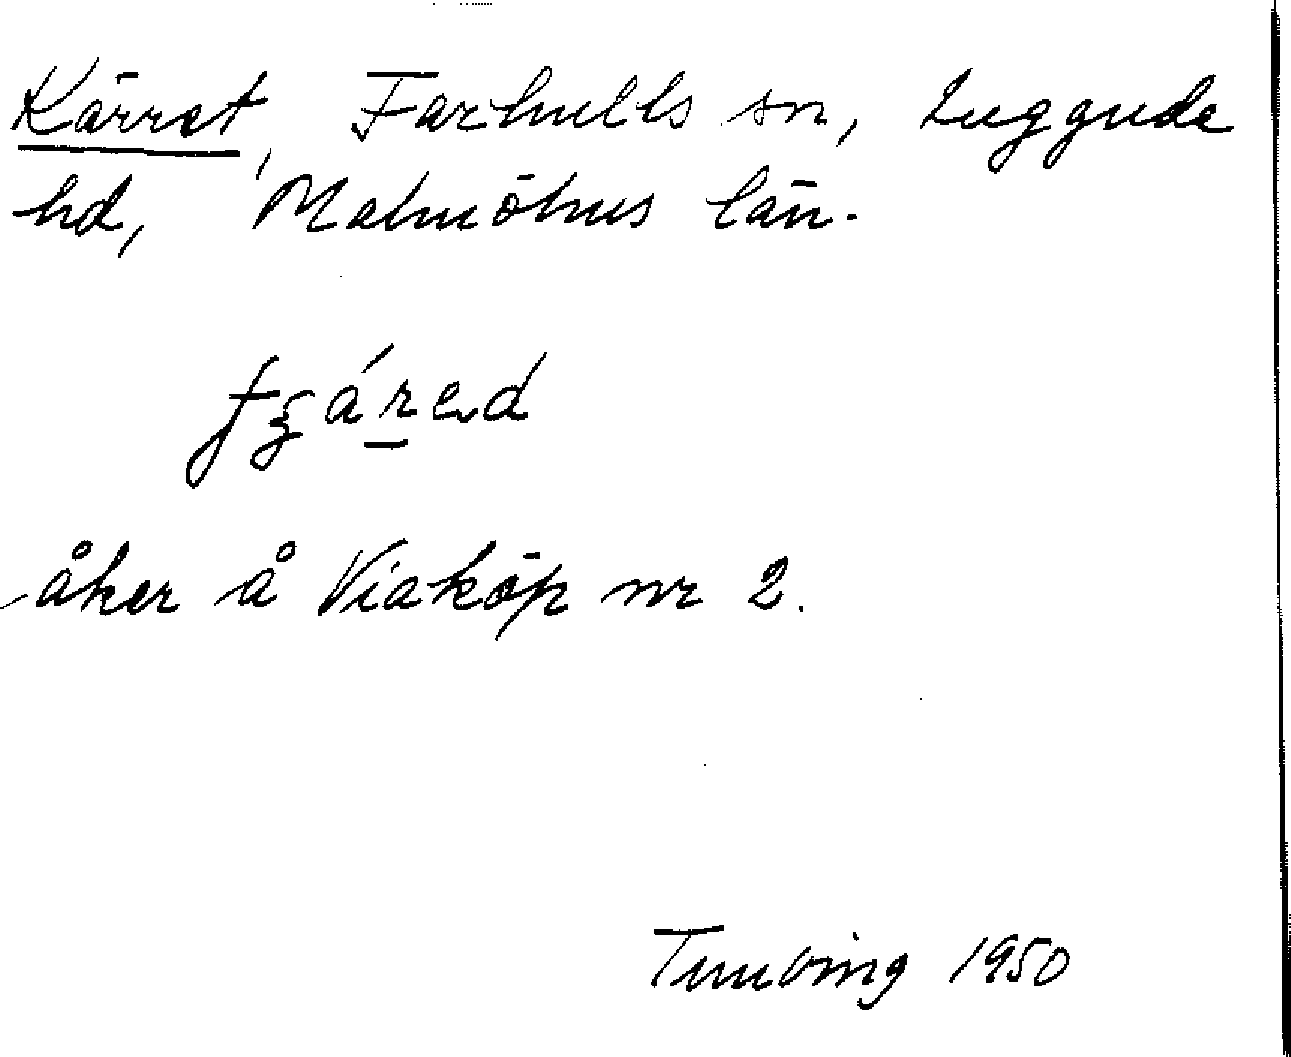 Kärret, Farhults sn, Luggude
hd, Malmöhus län.
åker å Viaköp nr 2.
1950